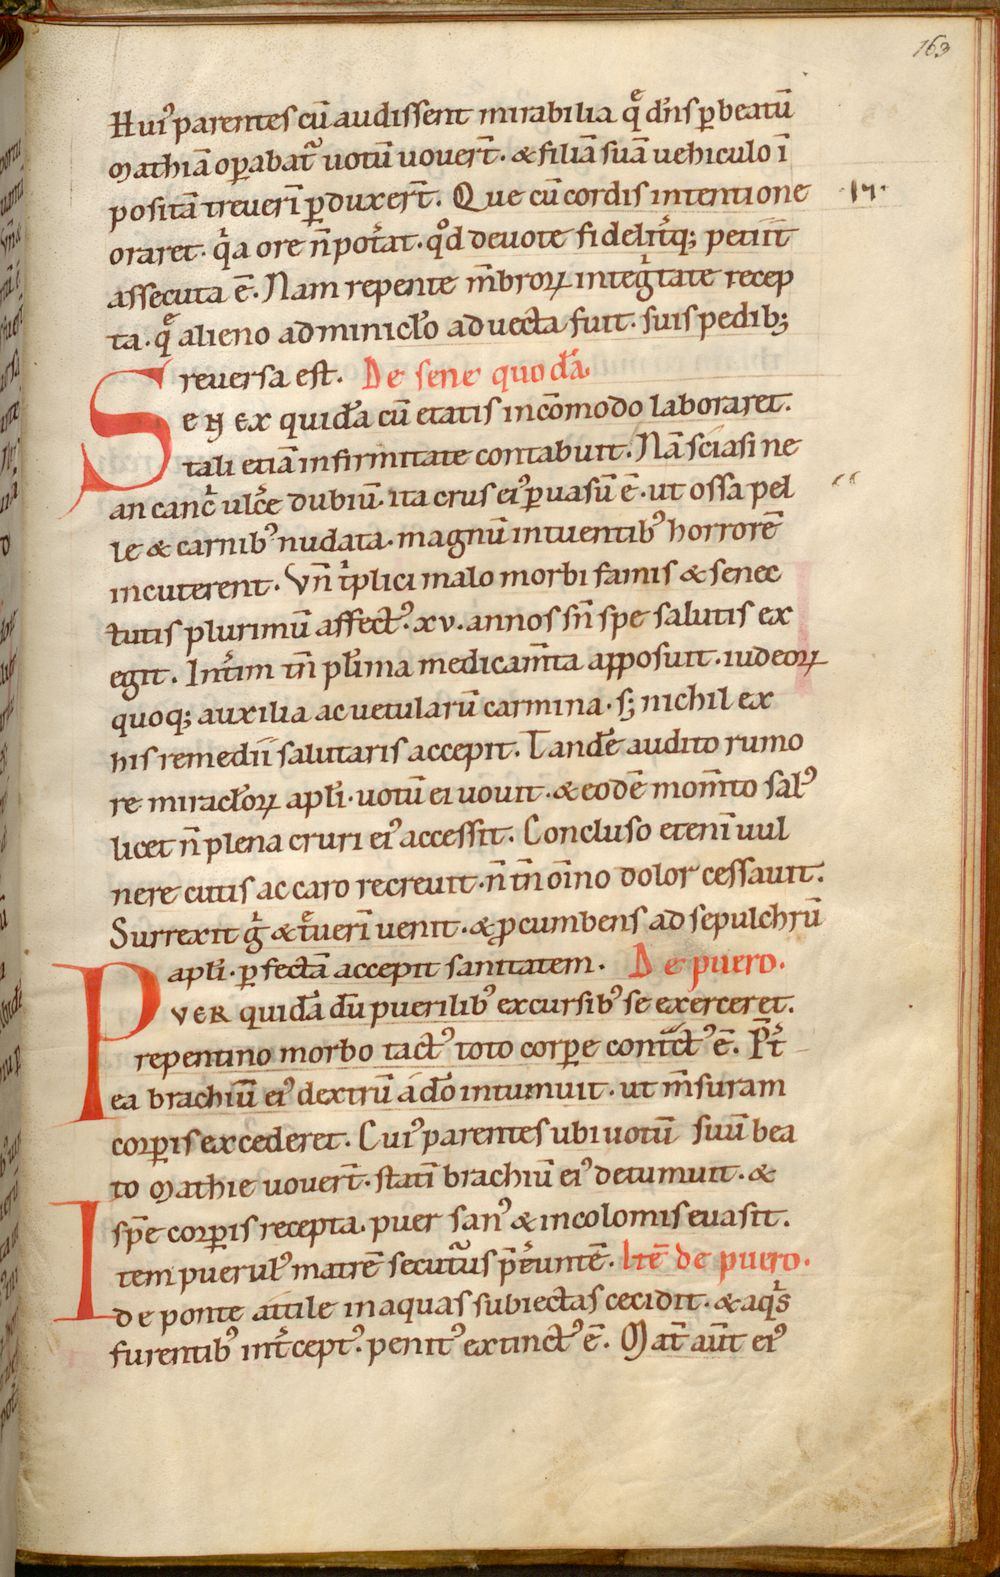 163
Hui᷒ parentes cū audissent mirabilia q̨ͤ dn̄s ꝑ beatū
Mathiā oꝑabat᷑ uotū uouerт̄. & filiā suā uehiculo ī
positā treueri̅ ꝑduxert̄. Que cū cordis intentione
oraret. qͥa ore n̄ potͥat. qͦd deuote fidelit᷑q; petiit
assecuta ē. Nam repente m̄broꝝ integͥtate recep
ta. qͤ alieno adminicl̄o aduecta fuit. suis pedib;
reuersa est. De sene quodā.
SENEX quidā cū etatis incōmodo laboraret.
tali etiā infirmitate contabuit. Nā sciasi ne
an cancͥ ulcͤe dubiū. ita crus ei᷒ ꝑuasū ē. ut ossa pel
le & carnib᷒ nudata. magnū intuentib᷒ horrorē
incuterent. Vn̄ tͥplici malo morbi famis & senec
tutis plurimū affect᷒. xv. annos sn̄ spe salutis ex
egit. Intͥim tn̄ pl̄ima medicam̄ta apposuit. iudeoꝝ
quoq; auxilia ac uetularū carmina. s; nichil ex
his remedii salutaris accepit. Tandē audito rumo
re miracl̄oꝝ apl̄i. uotū ei uouit. & eodē mom̄to sal᷒
licet n̄ plena cruri ei᷒ accessit. Concluso etenī uul
nere cutis ac caro recreuit. n̄ tn̄ oīno dolor cessauit.
Surrexit gͥ & tͤuerī uenit. & ꝓcumbens ad sepulchrū
apl̄i. ꝑfectā accepit sanitatem. De puero.
PVER quidā dū puerilib᷒ excursib᷒ se exerceret.
repentino morbo tact᷒ toto corꝑe contͣct᷒ ē. P̄tͥ
ea brachiū ei᷒ dextrū adō intumuit. ut m̄suram
corꝑis excederet. Cui᷒ parentes ubi uotū suū bea
to Mathie uouert̄. statī brachiū ei᷒ detumuit. &
spē corꝑis recepta. puer san᷒ & incolomis euasit.
Item puerul᷒ matrē secut᷑us p̄euntē. Itē de puero.
de ponte attile in aquas subiectas cecidit. & aqͥs
furentib᷒ intͥcept᷒. penit᷒ extinct᷒ ē. Mat̄ aūt ei᷒